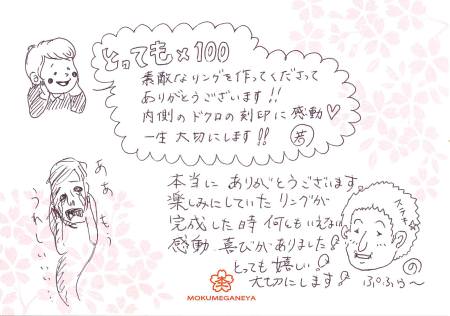 とっても×100
素敵なリングを作ってくださって
ありがとうございます!!
内側のドクロの刻印に感動♡
一生大切にします!!
ああ もう
うれしいい
本当にありがとうございます。
楽しみにしていたリングが
完成した時何んもいえない
感動、喜びがありました♪
とっても嬉しい♪
大切にします♪
ステキ
の
MOKUMEGANEYA